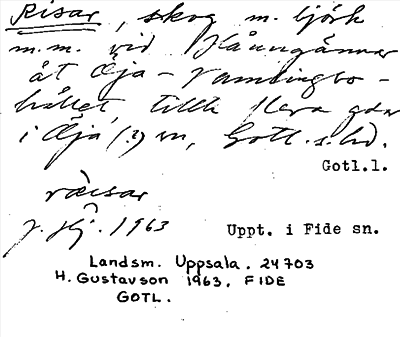 Risar, skog m. björk
m.m. vid
åt Öja - Vamlingbo-
hållet, tillh. flera gdar
i Öja (?) sn, Gotl. s. hd.
Gotl.l.
räisar
J. Hj. 1963
Uppt. i Fide sn.
Landsm. Uppsala. 24703
H. Gustavson 1963. FIDE
GOTL.